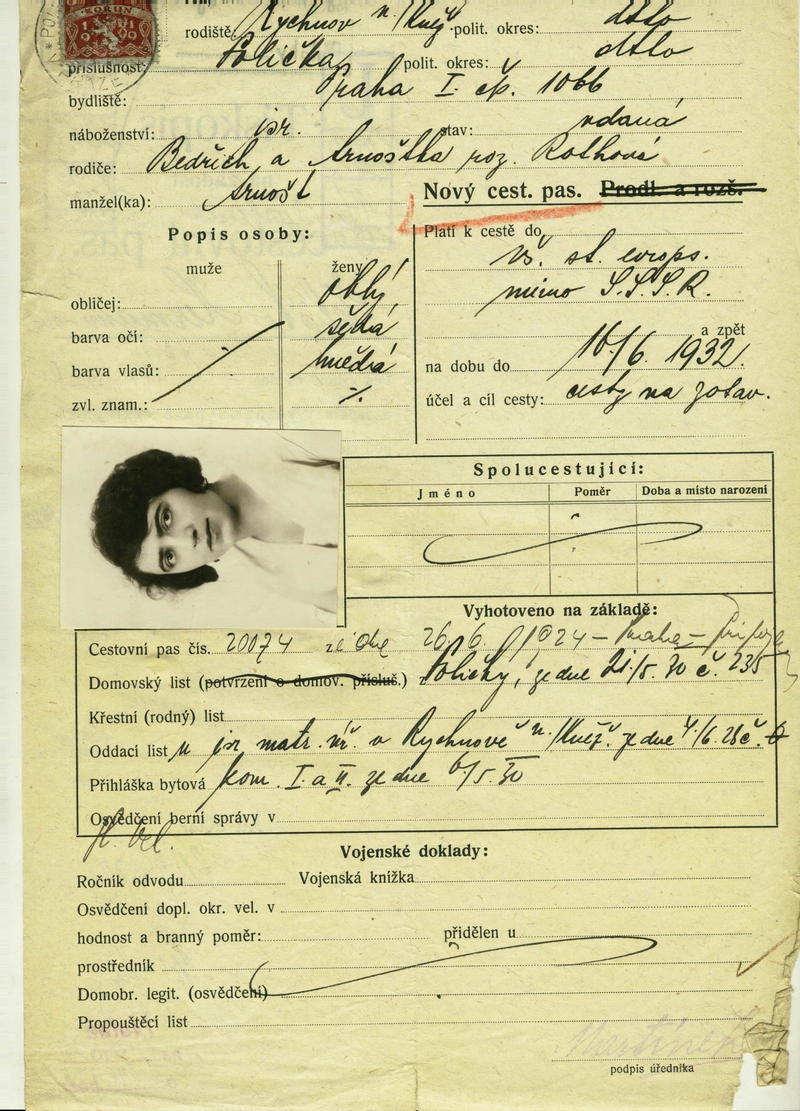 rodiště: Rychnov n/Kněž. polit. okres: dtto
příslušnost: Polička polit. okres: dtto
bydliště: Praha I. čp. 1066
náboženství: isr. stav: vdaná
rodiče: Bedřich a Arnoštka roz. Rothová
manžel(ka): Arnošt
Nový cest. pas. Prodl. a rozš.
Popis osoby:
muže ženy
obličej: oblý
barva očí: šedá
barva vlasů: hnědá
zvl. znam.: %
Platí k cestě do
vš. st. evrops.
mimo S.S.S.R.
a zpět
na dobu do 16/6. 1932.
účel a cíl cesty: cesty na zotav.
Spolucestující:
Jméno Poměr Doba a místo narození
Vyhotoveno na základě:
Cestovní pas čís. 20074 ze dne 26./6. 1924 – Praha –
Domovský list (potvrzení o domov. přísluš.) Poličky, ze dne 21/5. 30 č. 235
Křestní (rodný) list
Oddací list isr. matr. úř. v Rychnově n/Kněž. ze dne 4./6. 28 č.
Přihláška bytová kom. I. a II. ze dne 6/5. 30
Osvědčení berní správy v
Vojenské doklady:
Ročník odvodu Vojenská knížka
Osvědčení dopl. okr. vel. v
hodnost a branný poměr: přidělen u
prostředník
Domobr. legit. (osvědčení)
Propouštěcí list
podpis úředníka